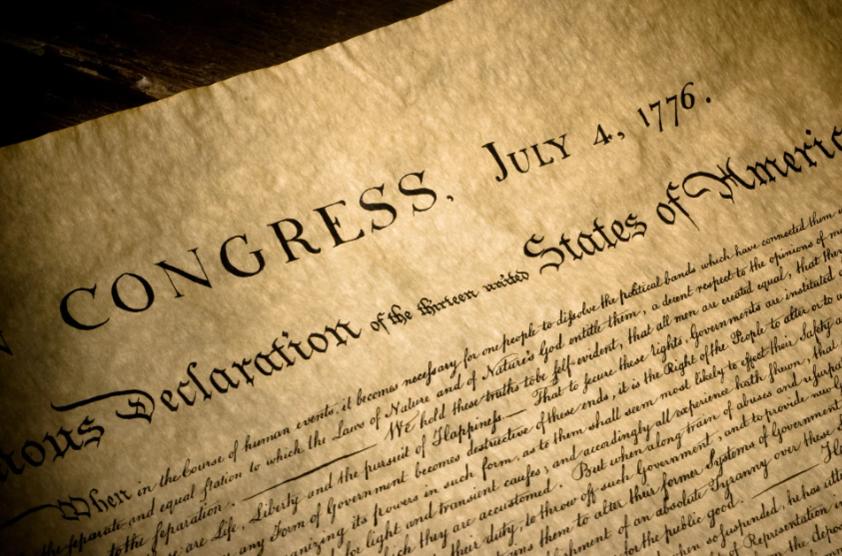 CONGRESS, JULY 4, 1776.
Declaration of the thirteen united States of America
When in the Course of human events, it becomes necessary for one people to dissolve the political bands which have connected them
the separate and equal station to which the Laws of Nature and of Nature's God entitle them, a decent respect to the opinions of
to the separation. We hold these truths to be self-evident, that all men are created equal, that
are Life, Liberty and the pursuit of Happiness. — That to secure these rights, Governments are instituted
any Form of Government becomes destructive of these ends, it is the Right of the People to alter or to
organizing its powers in such form, as to them shall seem most likely to effect their Safety
for light and transient causes; and accordingly all experience hath shewn, that
which they are accustomed. But when a long train of abuses and
their duty, to throw off such Government, and to provide new
them to alter their former Systems of Government.
of an absolute Tyranny over these
for the public good.
so suspended, he has
Representation